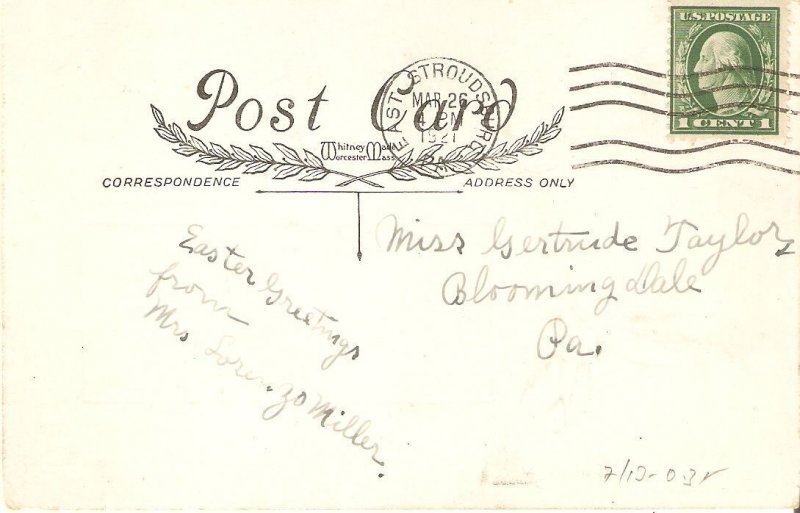 U.S. POSTAGE
1 CENT 1
Post Card
EAST STROUDSBURG
MAR 26
4 PM
1921
PA.
Whitney Made
Worcester, Mass.
CORRESPONDENCE
ADDRESS ONLY
Miss Gertrude Taylor,
Blooming Dale
Pa.
Easter Greetings
from
Mrs Lorenzo Miller.